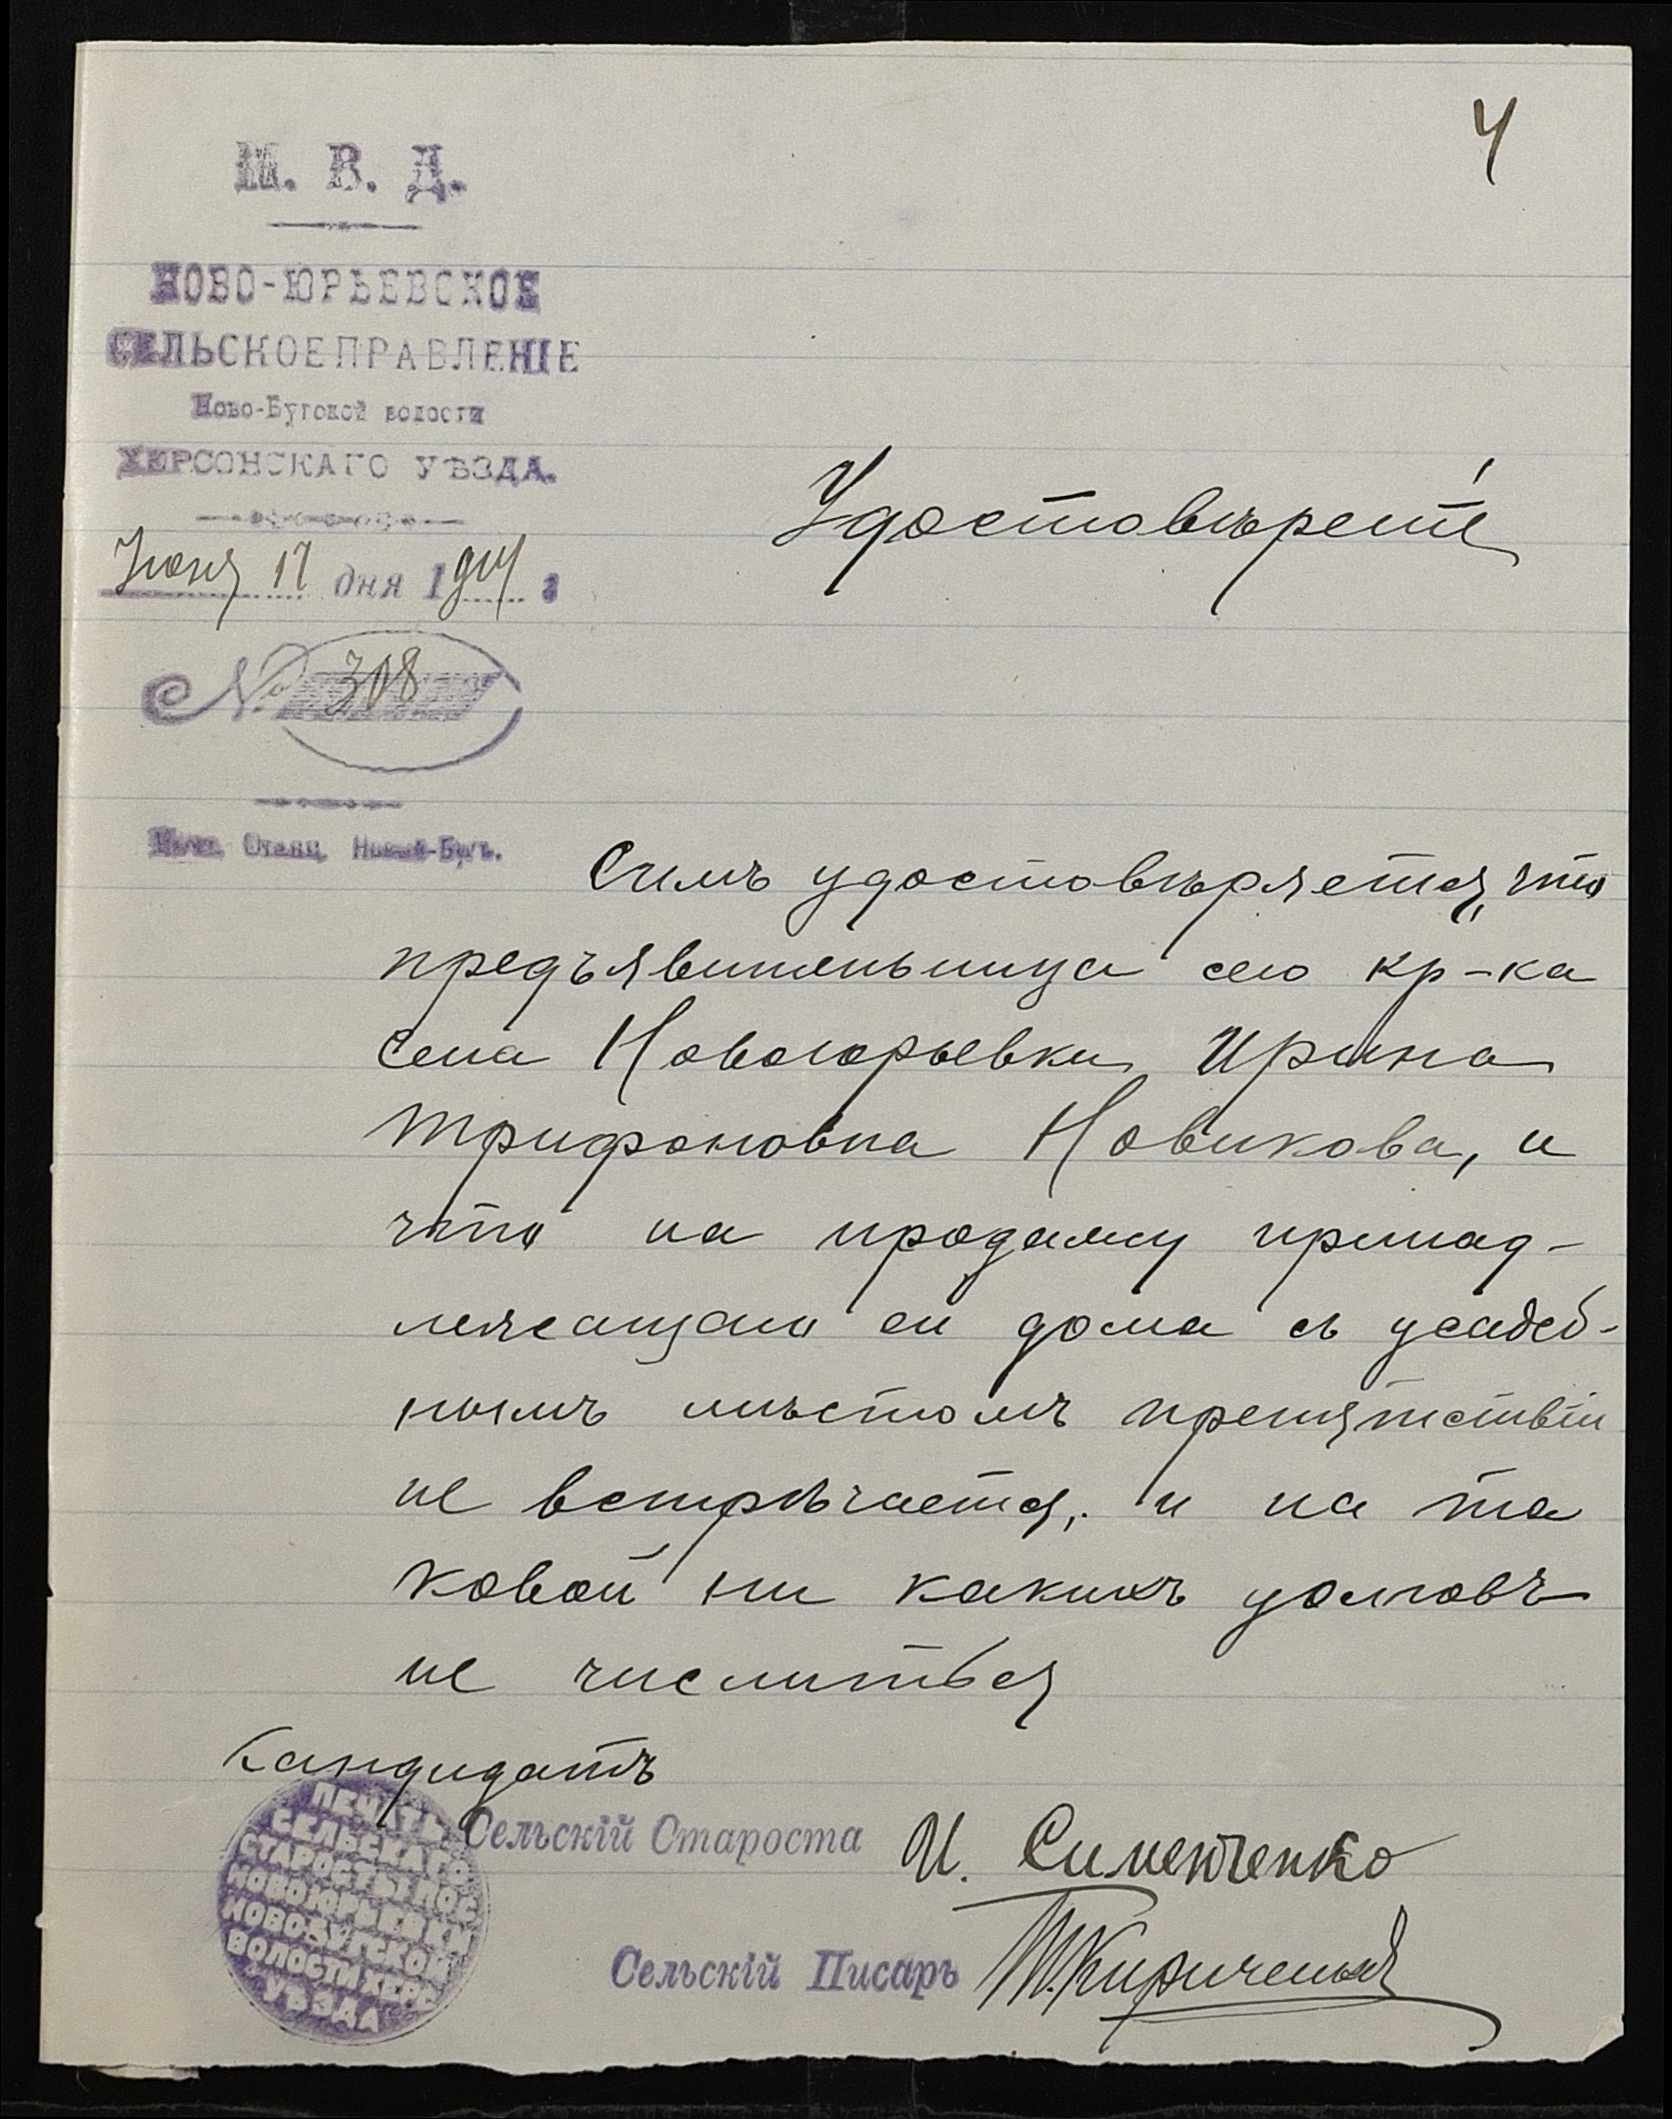 4
М. В. Д.
НОВО-ЮРЬЕВСКОЕ
СЕЛЬСКОЕ ПРАВЛЕНІЕ
Ново-Бугской волости
ХЕРСОНСКАГО УѢЗДА.
Іюня 17 дня 1914 г
№ 308
Станц. Новый-Бугъ.
Удостовѣрені́е
Симъ удостовѣряется, что
предъявительница сего кр-ка
села Новоюрьевки Ирина
Трифоновна Новикова, и
что на продажу принад-
лежащаго ей дома съ усадеб-
нымъ мѣстомъ препятствій
не встрѣчается, и на та
ковой ни какихъ долговъ
не числиться
Кандидатъ
Сельскій Староста И. Сименченко
Сельскій Писарь Кириченко
ПЕЧАТЬ
СЕЛЬСКАГО
СТАРОСТЫ ПОС
НОВОЮРЬЕВКИ
НОВОБУГСКОЙ
ВОЛОСТИ ХЕРС
УѢЗДА